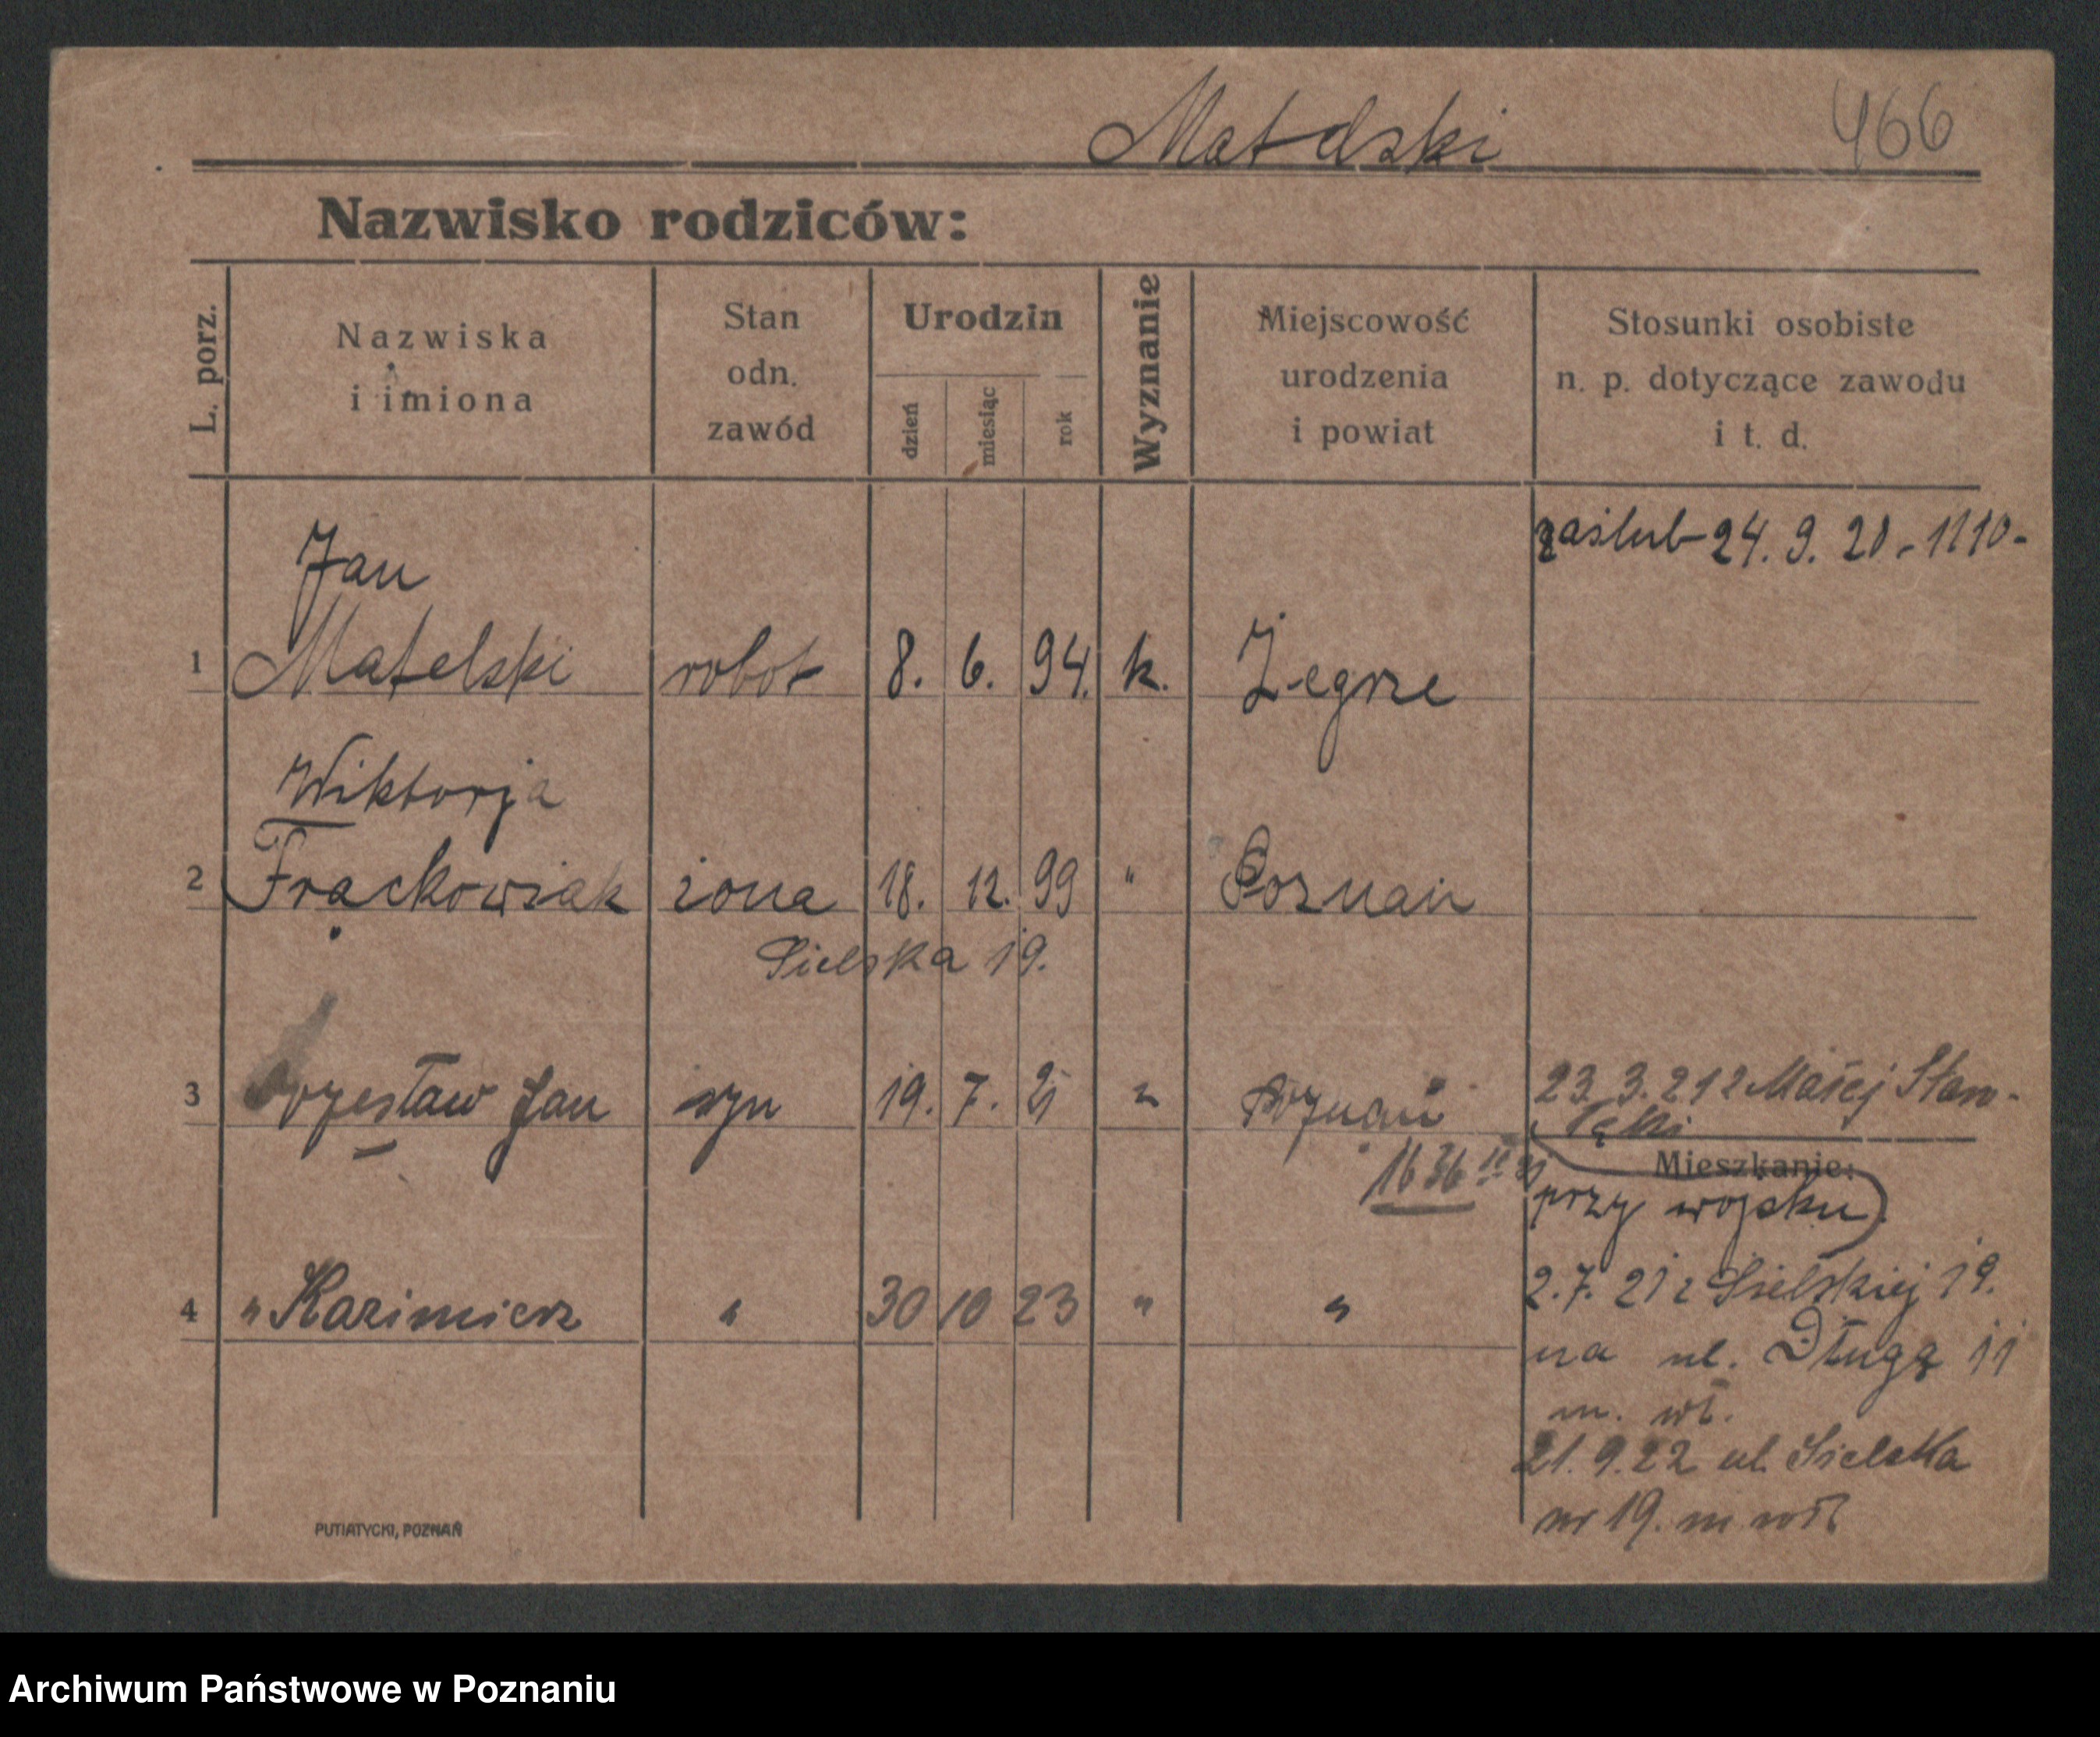 Matelski 466
Nazwisko rodziców:
L. porz.
Nazwiska
i imiona
Stan
odn.
zawód
Urodzin
dzień
miesiąc
rok
Wyznanie
Miejscowość
urodzenia
i powiat
Stosunki osobiste
n. p. dotyczące zawodu
i t. d.
zaślub 24. 9. 20. - 1110 -
Jan
1 Matelski robot 8. 6. 94. k. Żegrze
Wiktorja
2 Frackowiak żona 18. 12. 99 " Poznań
Sielska 19.
3 Jan syn 19. 7. 21 " Poznań 23. 3. 21 z Małej Staro-
łęki
Mieszkanie:
1636
przy wojsku
4 " Kazimierz " 30 10 23 " " 2. 7. 21 z Sielskiej 19.
na ul. Długą 11
m. wł.
21. 9. 22 ul. Sielska
nr 19. m
PUTIATYCKI, POZNAŃ
Archiwum Państwowe w Poznaniu